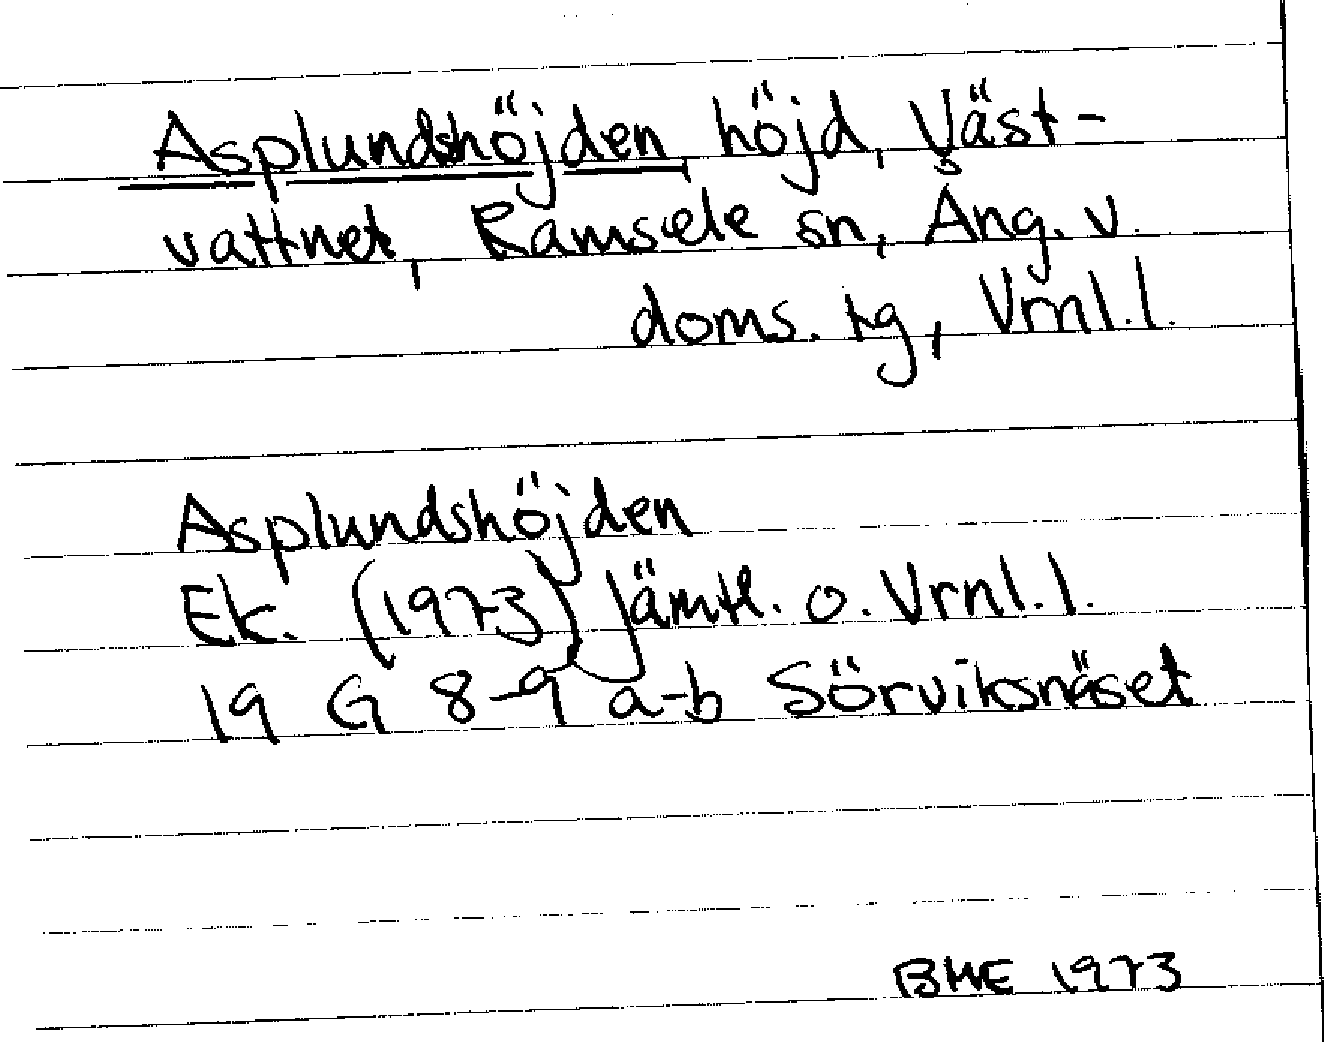 Asplundshöjden, höjd, Väst-
vattnet, Ramsele sn, Ång. v.
doms. tg, Vrnl. l.
Asplundshöjden
Ek. (1973) Jämtl. o. Vrnl. l.
19 G 8-9 a-b Sörviksnäset
BHE 1973